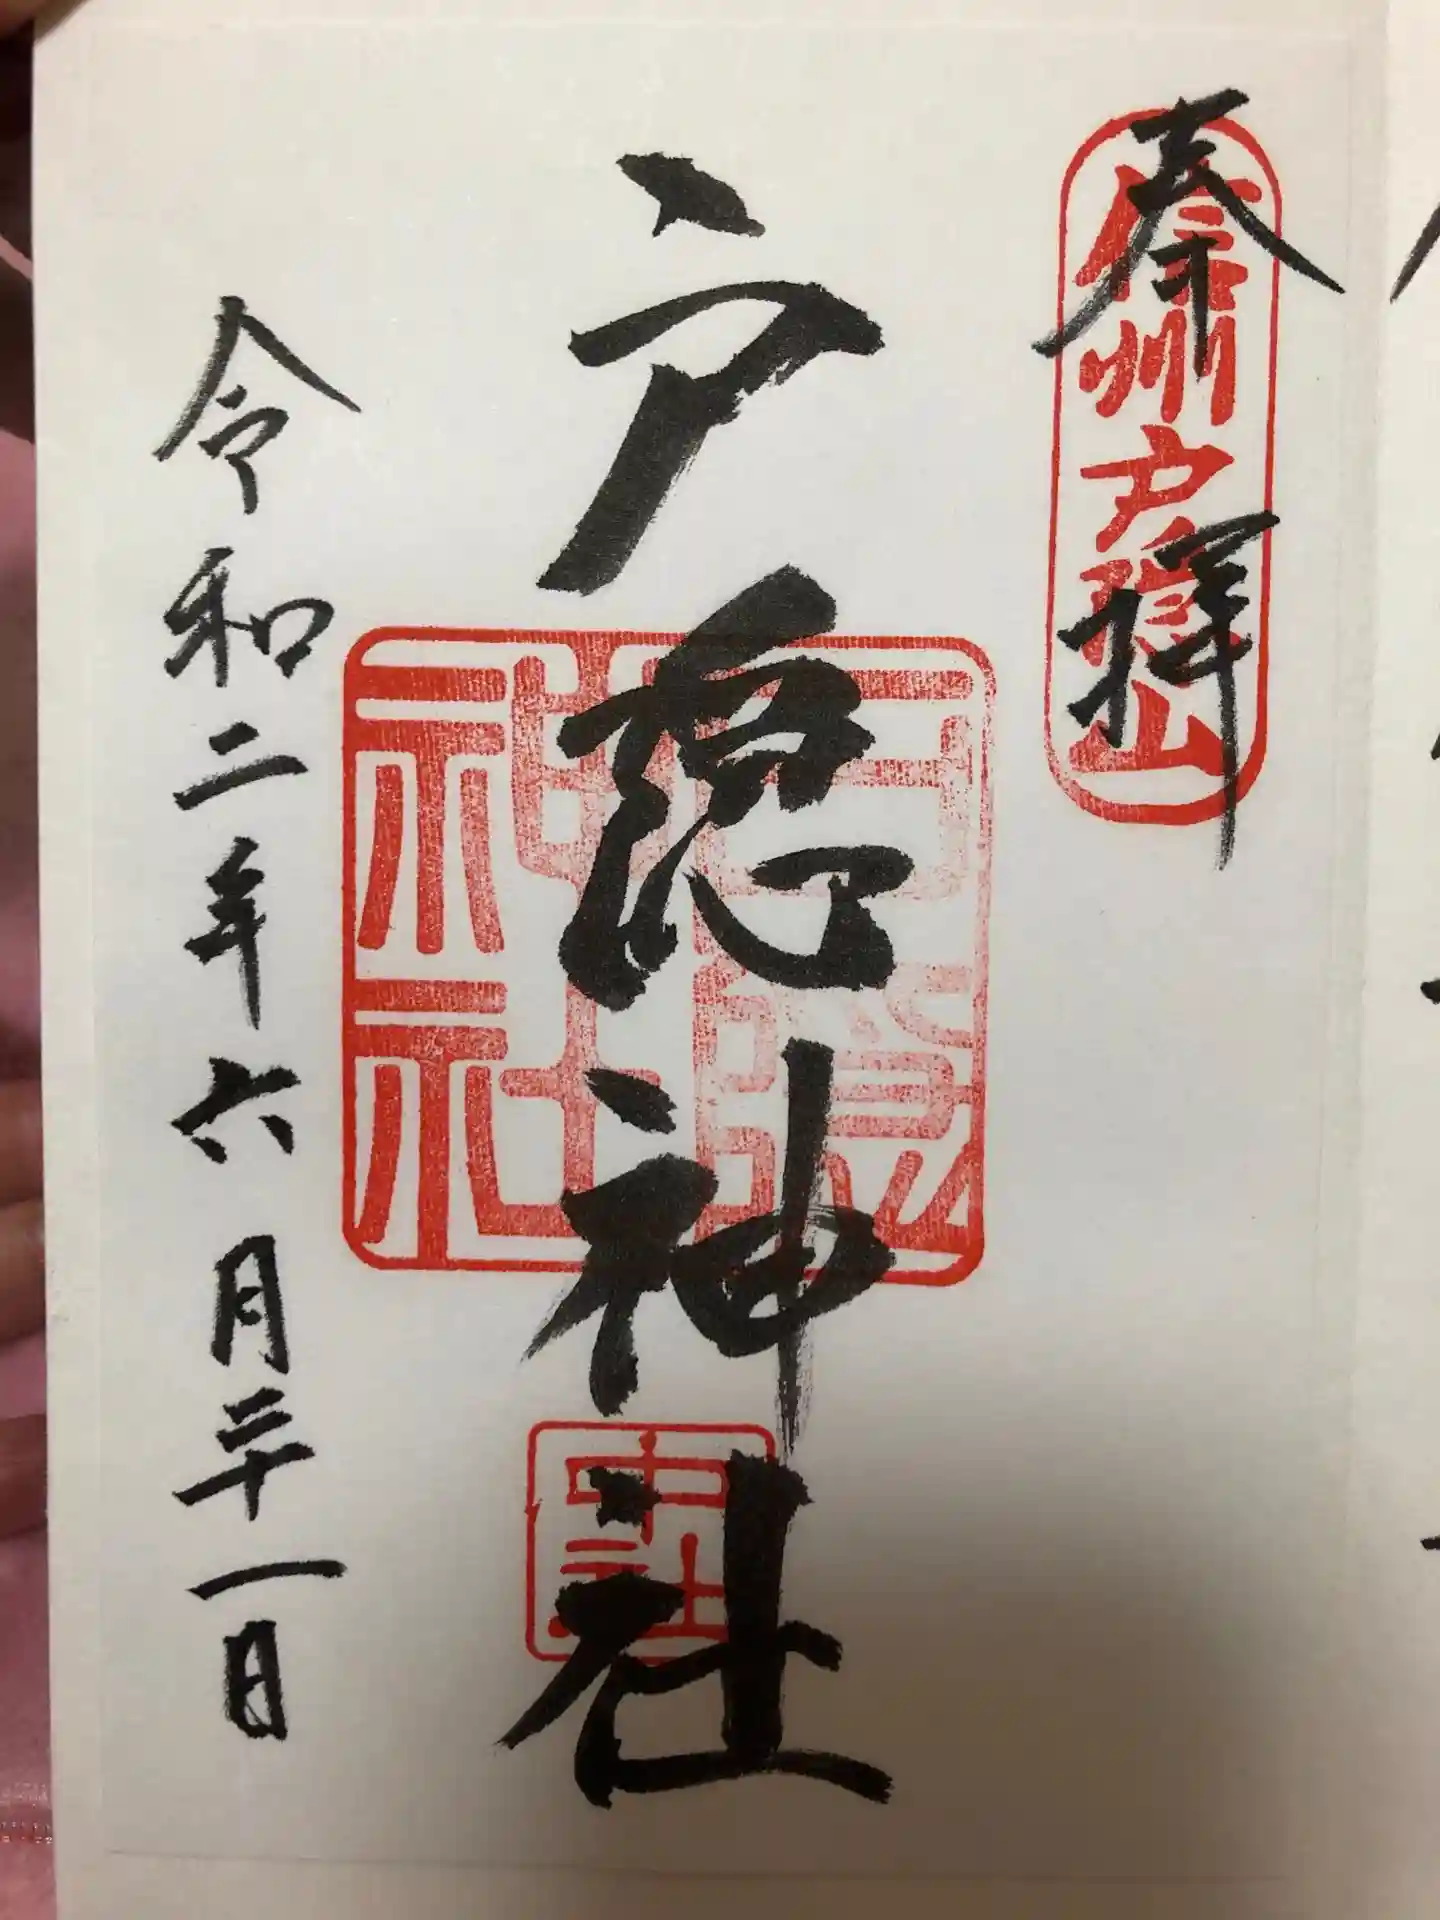 奉拝
信州戸隠山
戸隠神社
戸隠神社
中社
令和二年六月二十一日